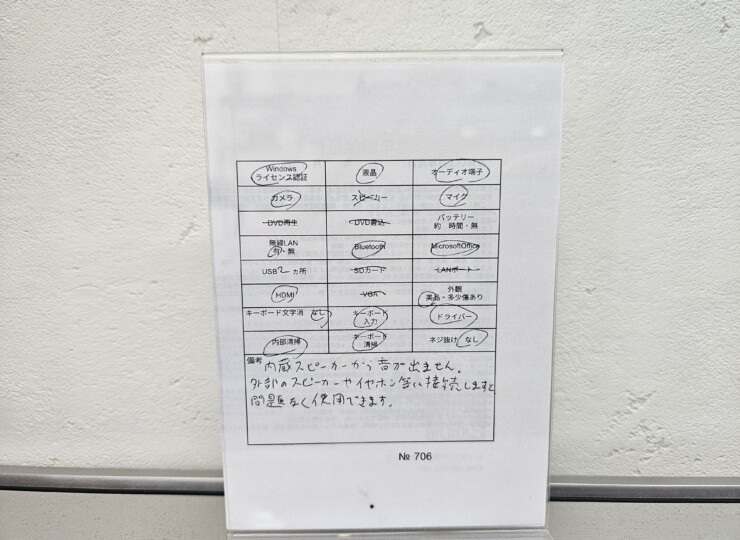 Windows
ライセンス認証
液晶
オーディオ端子
カメラ
スピーカー
マイク
DVD再生
DVD書込
バッテリー
約 時間・無
無線LAN
有・無
Bluetooth
MicrosoftOffice
USB2ヵ所
SDカード
LANポート
HDMI
VGA
外観
美品・多少傷あり
キーボード文字消 なし
キーボード
入力
ドライバー
内部清掃
キーボード
清掃
ネジ抜け なし
備考 内蔵スピーカーから音が出ません。
外部のスピーカーやイヤホン等に接続しますと
問題なく使用できます。
№ 706